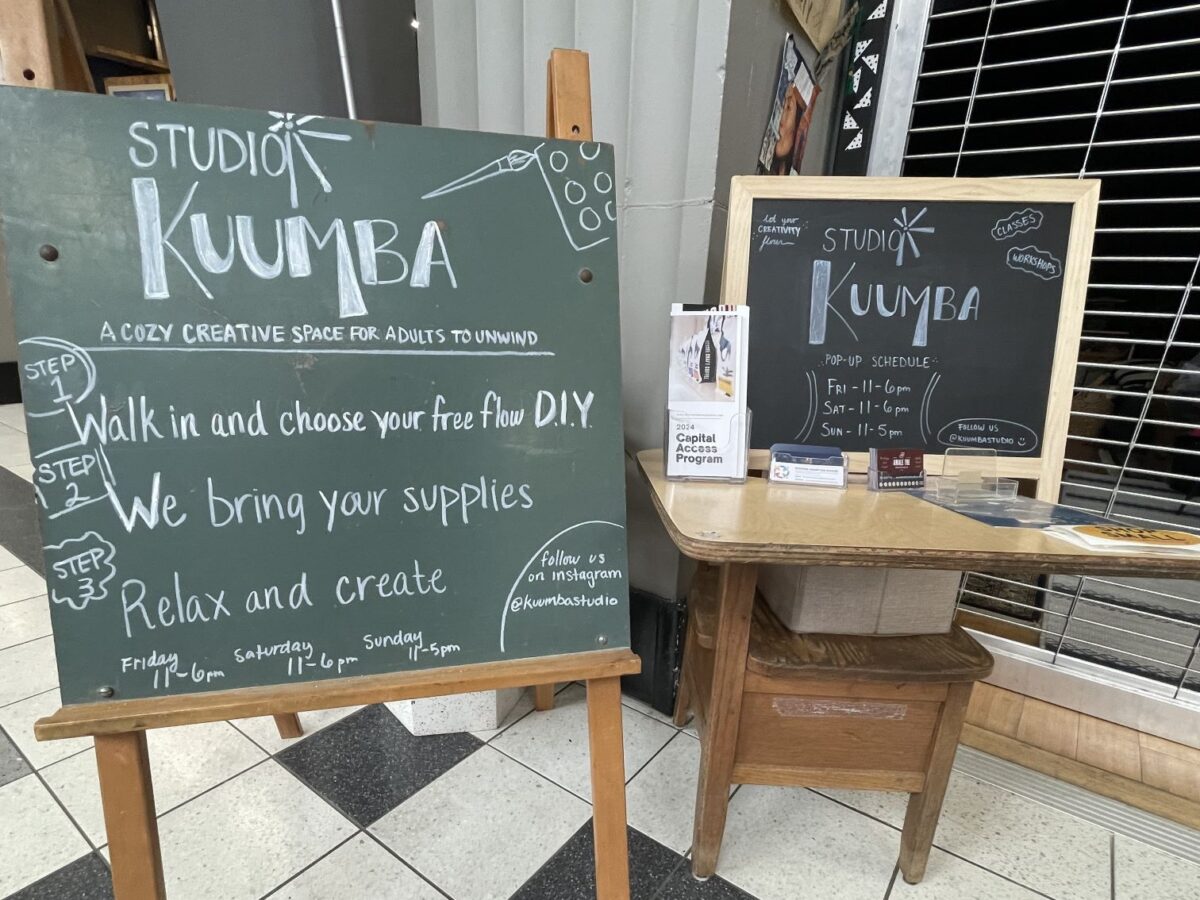 STUDIO
KUUMBA
A COZY CREATIVE SPACE FOR ADULTS TO UNWIND
STEP
1
Walk in and choose your free flow D.I.Y.
STEP
2
We bring your supplies
STEP
3
Relax and create
follow us
on instagram
@kuumbastudio
Friday
11-6pm
Saturday
11-6pm
Sunday
11-5pm
let your
CREATIVITY
flow
STUDIO
KUUMBA
CLASSES
WORKSHOPS
POP-UP SCHEDULE
FRI-11-6pm
SAT-11-6pm
SUN-11-5pm
FOLLOW US
@KUUMBASTUDIO
2024
Capital
Access
Program
SHOP
SMALL